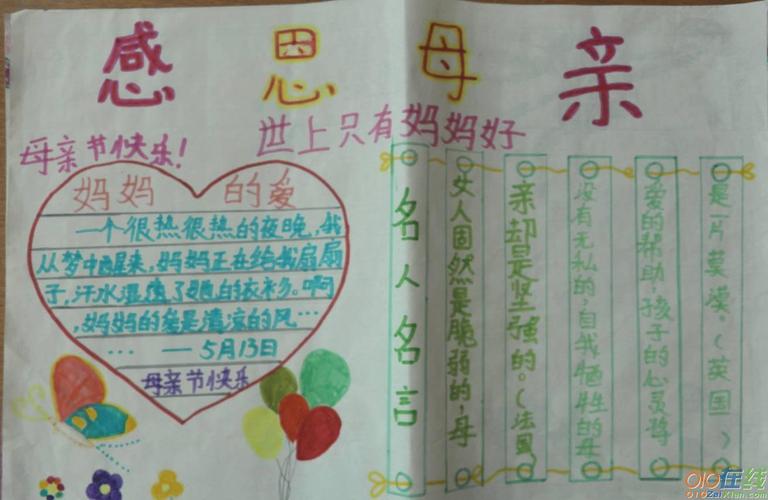 感恩母亲
世上只有妈妈好
母亲节快乐!
妈妈的爱
一个很热很热的夜晚,我
从梦中醒来,妈妈正在给我扇扇
子,汗水湿透了她的衣衫。啊
,妈妈的爱是清凉的风…
… — 5月13日
母亲节快乐
名人名言
女人固然是脆弱的,母
亲却是坚强的。(法国)
没有无私的,自我牺牲的母
爱的帮助,孩子的心灵将
是一片荒漠。(英国)
010在线
010ZaiXian.com